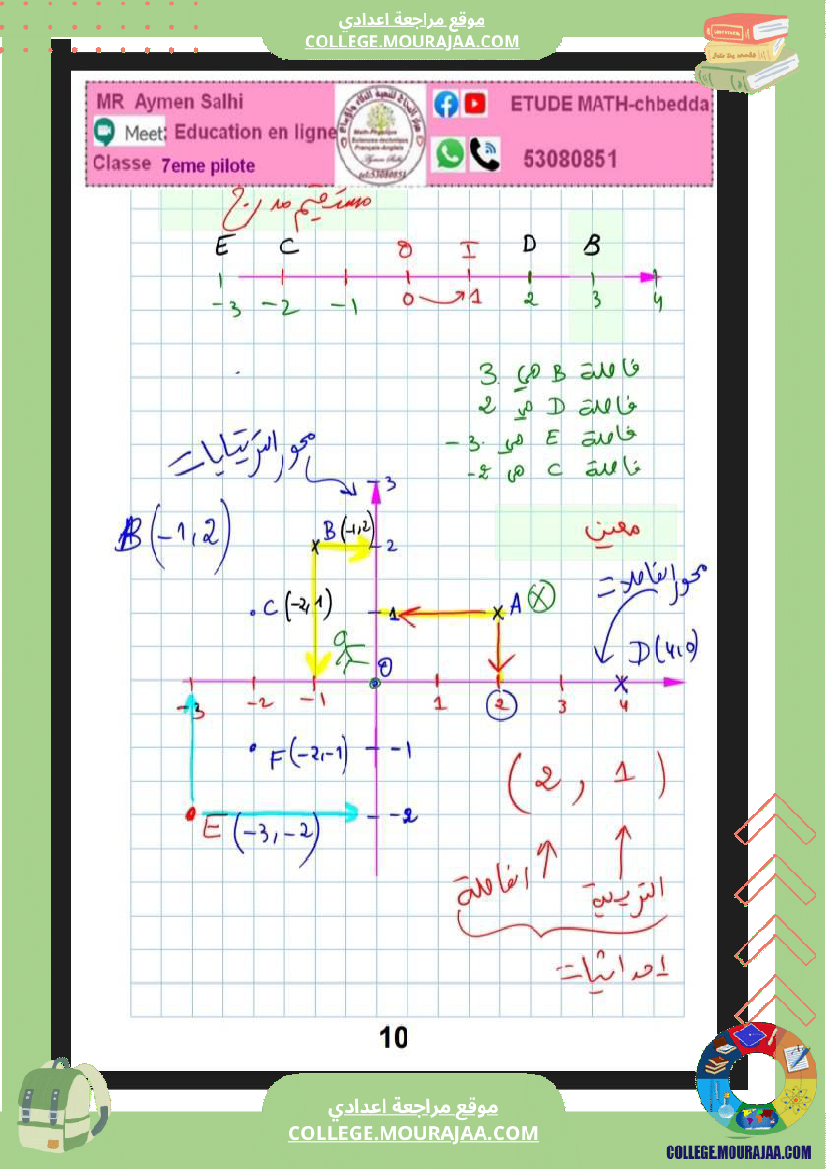 موقع مراجعة اعدادي
COLLEGE.MOURAJAA.COM
MR Aymen Salhi
ETUDE MATH-chbedda
Meet: Education en ligne
53080851
Classe 7eme pilote
مستقيم مدرج
E C O I D B
-3 -2 -1 0 1 2 3 4
فاصلة B هي 3
فاصلة D هي 2
فاصلة E هي -3
فاصلة C هي -2
محور الترتيبات
3
معين
B(-1,2)
B(-1,2)
2
محور الفاصلة
C(-2,1)
1
A
O
D(4,0)
-3 -2 -1 1 2 3 4
F(-2,-1)
-1
(2, 1)
-2
E(-3,-2)
الفاصلة
الترتيبة
احداثيات
10
موقع مراجعة اعدادي
COLLEGE.MOURAJAA.COM
COLLEGE.MOURAJAA.COM